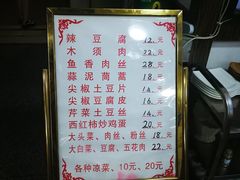 辣豆腐 12.元
木须肉 32.元
鱼香肉丝 28.元
蒜泥茼蒿 18.元
尖椒土豆片 14.元
尖椒豆腐皮 16.元
芹菜土豆丝 14.元
西红柿炒鸡蛋 20.元
大头菜、肉丝、粉丝 18.元
大白菜、豆腐、五花肉 22.元
各种凉菜、10元、20元